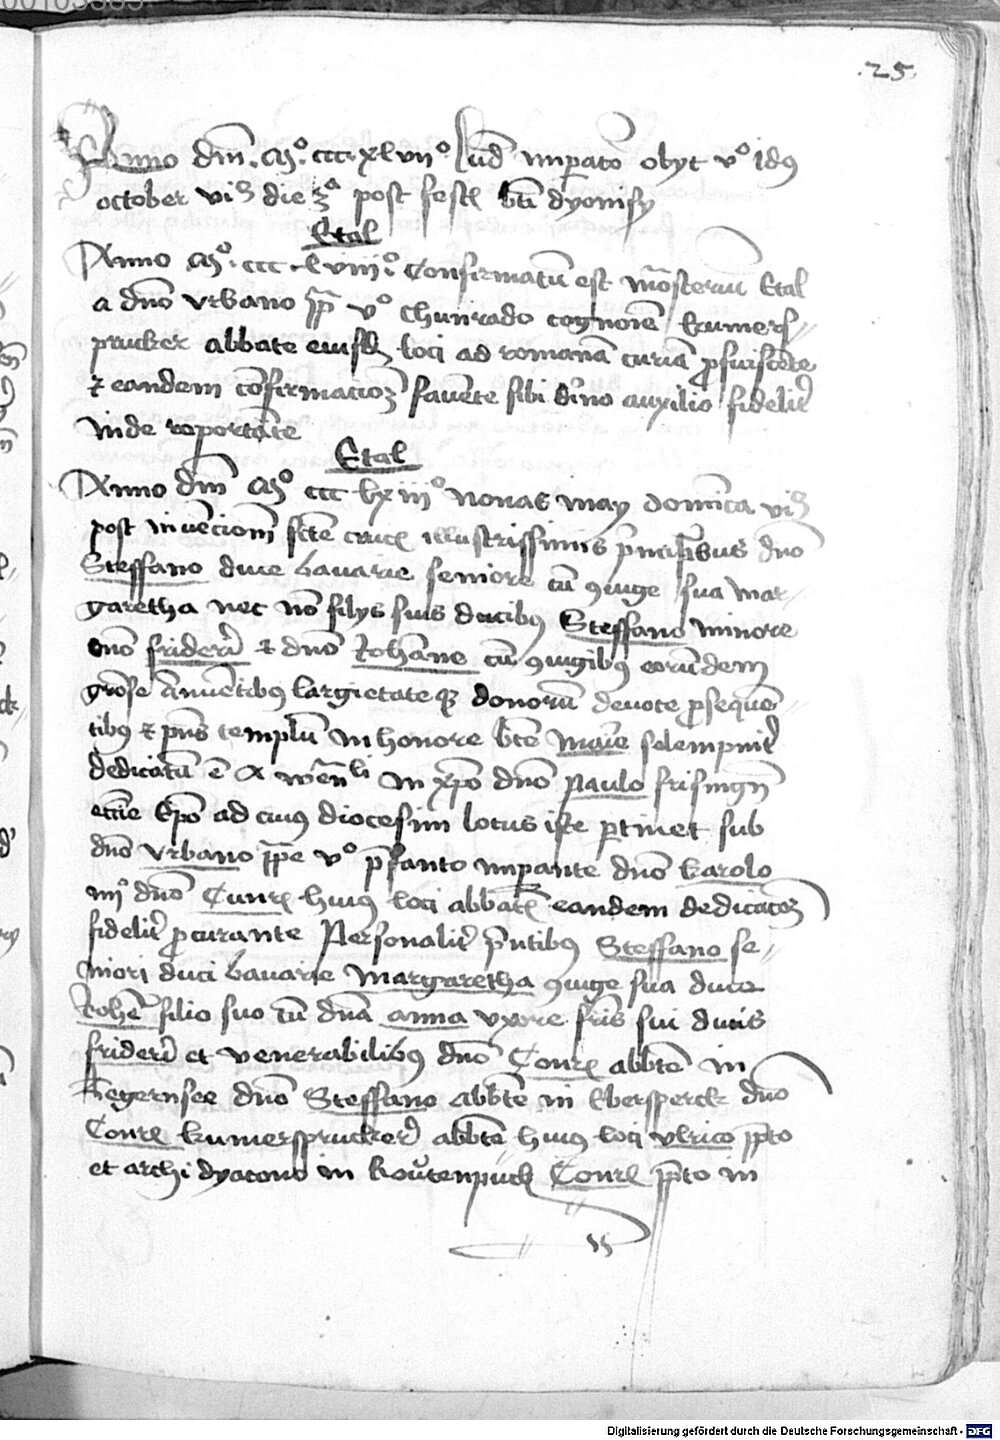 00103383
.25.
Anno dm̄. Mº. cccº. xl viiº Lud imp̄ator obyt vº Idꝯ
october vi3 die 3ª post fest bt̄i dyonisy
Etal
Anno Mº. ccc. lviiiiº. Confirmatū est mōsteriū Etal
a dn̄o Vrbano pp̄ vº Chunrado cognoīe kumers//
prucker abbate eiusd loci ad romanā curiā ꝓfiscēte
et eandem confirmacioꝫ favēte sibi diuīo auxilio fidelit̄
inde reportāte
Etal
Anno dm̄ Mº ccc lxxiiiº Nonas may domīca vi3
post invēcionē scē crucis illustrissimis p̄ncipibus dn̄o
Steffano duce bavarie seniore cū ꝯiuge sua mar//
garetha nec nō filys suis ducibꝯ Steffano minore
dn̄o frideric̄ et dn̄o Johāne cū ꝯiugibꝯ eorūdem
Annuētibus largietateqꝫ donorū devote ꝓsequē//
tibꝯ et p̄ns templū in honore bt̄e marie solempnit̄
dedicatū ē A in xp̄o dn̄o paulo frisingn̄
ecc̄ie Ep̄o ad cuiꝯ diocesim locus iste ꝑtinet sub
dn̄o vrbano pp̄e vº imperante dn̄o karolo
iiiiº dn̄o Cunr̄ huiꝯ loci abbate eandem dedicacōꝫ
fidelit̄ ꝓcurante Personalit̄ p̄ntibꝯ Steffano se//
niori duci bavarie Margaretha ꝯiuge sua
Johē filio suo cū dn̄a anna vxore fr̄is sui ducis
frideric̄ et venerabilibꝯ dn̄o Conr̄ abbt̄e in
Tegernsee dn̄o Steffano abbt̄e in Ebersperck dn̄o
Conr̄ kumersprucker abbt̄e huiꝯ loci vlrico pp̄to
et archi dyacono in Routenpuch Conr̄ pp̄to in
Digitalisierung gefördert durch die Deutsche Forschungsgemeinschaft - DFG